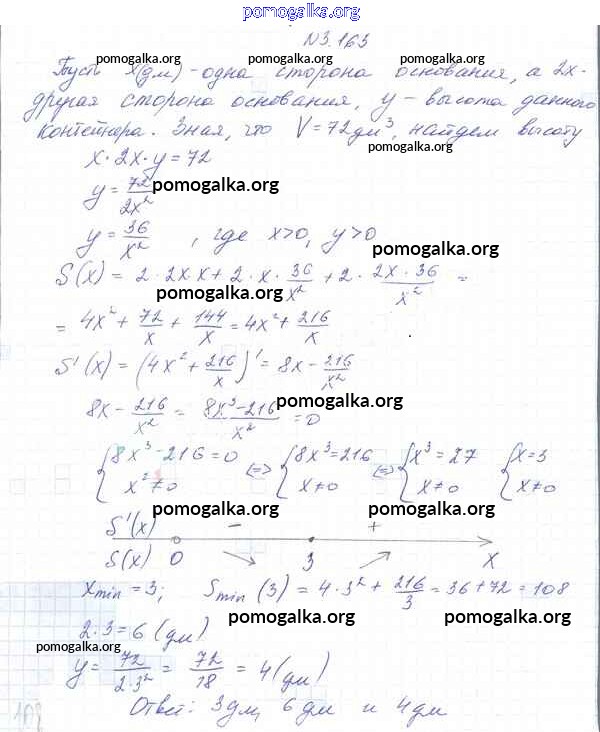 pomogalka.org
N3.163
pomogalka.org pomogalka.org
Пусть x(дм) - одна сторона основания, а 2x-
другая сторона основания, y - высота данного
контейнера. Зная, что V=72дм³, найдем высоту
pomogalka.org
x·2x·y=72
y=72/2x² pomogalka.org
y=36/x² , где x>0, y>0
pomogalka.org
S(x) = 2·2x·x+2·x·36/x²+2·2x·36/x² =
pomogalka.org
= 4x²+72/x+144/x=4x²+216/x
S'(x) = (4x²+216/x)'=8x-216/x²
pomogalka.org
8x-216/x²=8x³-216/x²=0
{8x³-216=0 <=> {8x³=216 <=> {x³=27 {x=3
x²≠0 x≠0 x≠0 x≠0
pomogalka.org pomogalka.org
S'(x) - +
S(x) 0 3 x
xmin=3; Smin(3)=4·3²+216/3=36+72=108
pomogalka.org
2·3=6(дм)
pomogalka.org
y=72/2·3²=72/18=4(дм)
pomogalka.org
Ответ: 3дм, 6дм и 4дм